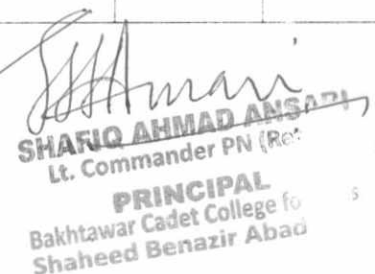 SHAFIQ AHMAD ANSARI
Lt. Commander PN (Ret
PRINCIPAL
Bakhtawar Cadet College fo s
Shaheed Benazir Abad